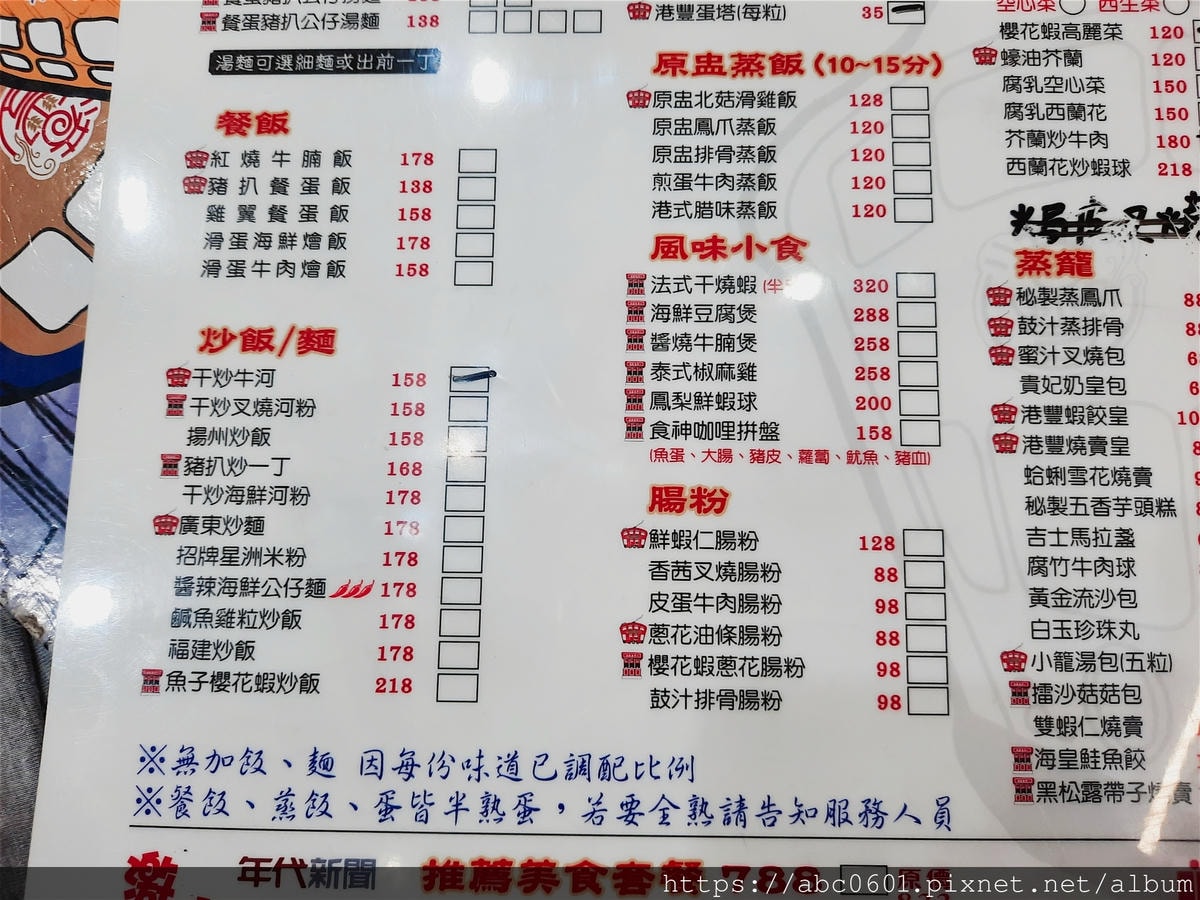 餐蛋豬扒公仔湯麵 138
湯麵可選細麵或出前一丁
餐飯
紅燒牛腩飯 178
豬扒餐蛋飯 138
雞翼餐蛋飯 158
滑蛋海鮮燴飯 178
滑蛋牛肉燴飯 158
炒飯/麵
干炒牛河 158
干炒叉燒河粉 158
揚州炒飯 158
豬扒炒一丁 168
干炒海鮮河粉 178
廣東炒麵 178
招牌星洲米粉 178
醬辣海鮮公仔麵 178
鹹魚雞粒炒飯 178
福建炒飯 178
魚子櫻花蝦炒飯 218
港豐蛋塔(每粒) 35
原盅蒸飯(10~15分)
原盅北菇滑雞飯 128
原盅鳳爪蒸飯 120
原盅排骨蒸飯 120
煎蛋牛肉蒸飯 120
港式腊味蒸飯 120
風味小食
法式干燒蝦(半 320
海鮮豆腐煲 288
醬燒牛腩煲 258
泰式椒麻雞 258
鳳梨鮮蝦球 200
食神咖哩拼盤 158
(魚蛋、大腸、豬皮、蘿蔔、魷魚、豬血)
腸粉
鮮蝦仁腸粉 128
香茜叉燒腸粉 88
皮蛋牛肉腸粉 98
蔥花油條腸粉 88
櫻花蝦蔥花腸粉 98
鼓汁排骨腸粉 98
空心菜 西生菜
櫻花蝦高麗菜 120
蠔油芥蘭 120
腐乳空心菜 150
腐乳西蘭花 150
芥蘭炒牛肉 180
西蘭花炒蝦球 218
蒸籠
秘製蒸鳳爪
鼓汁蒸排骨
蜜汁叉燒包
貴妃奶皇包
港豐蝦餃皇
港豐燒賣皇
蛤蜊雪花燒賣
秘製五香芋頭糕
吉士馬拉盞
腐竹牛肉球
黃金流沙包
白玉珍珠丸
小籠湯包(五粒)
擂沙菇菇包
雙蝦仁燒賣
海皇鮭魚餃
黑松露帶子燒賣
※無加飯、麵 因每份味道已調配比例
※餐飯、蒸飯、蛋皆半熟蛋，若要全熟請告知服務人員
年代新聞 推薦美食套餐 788 原價
https://abc0601.pixnet.net/album